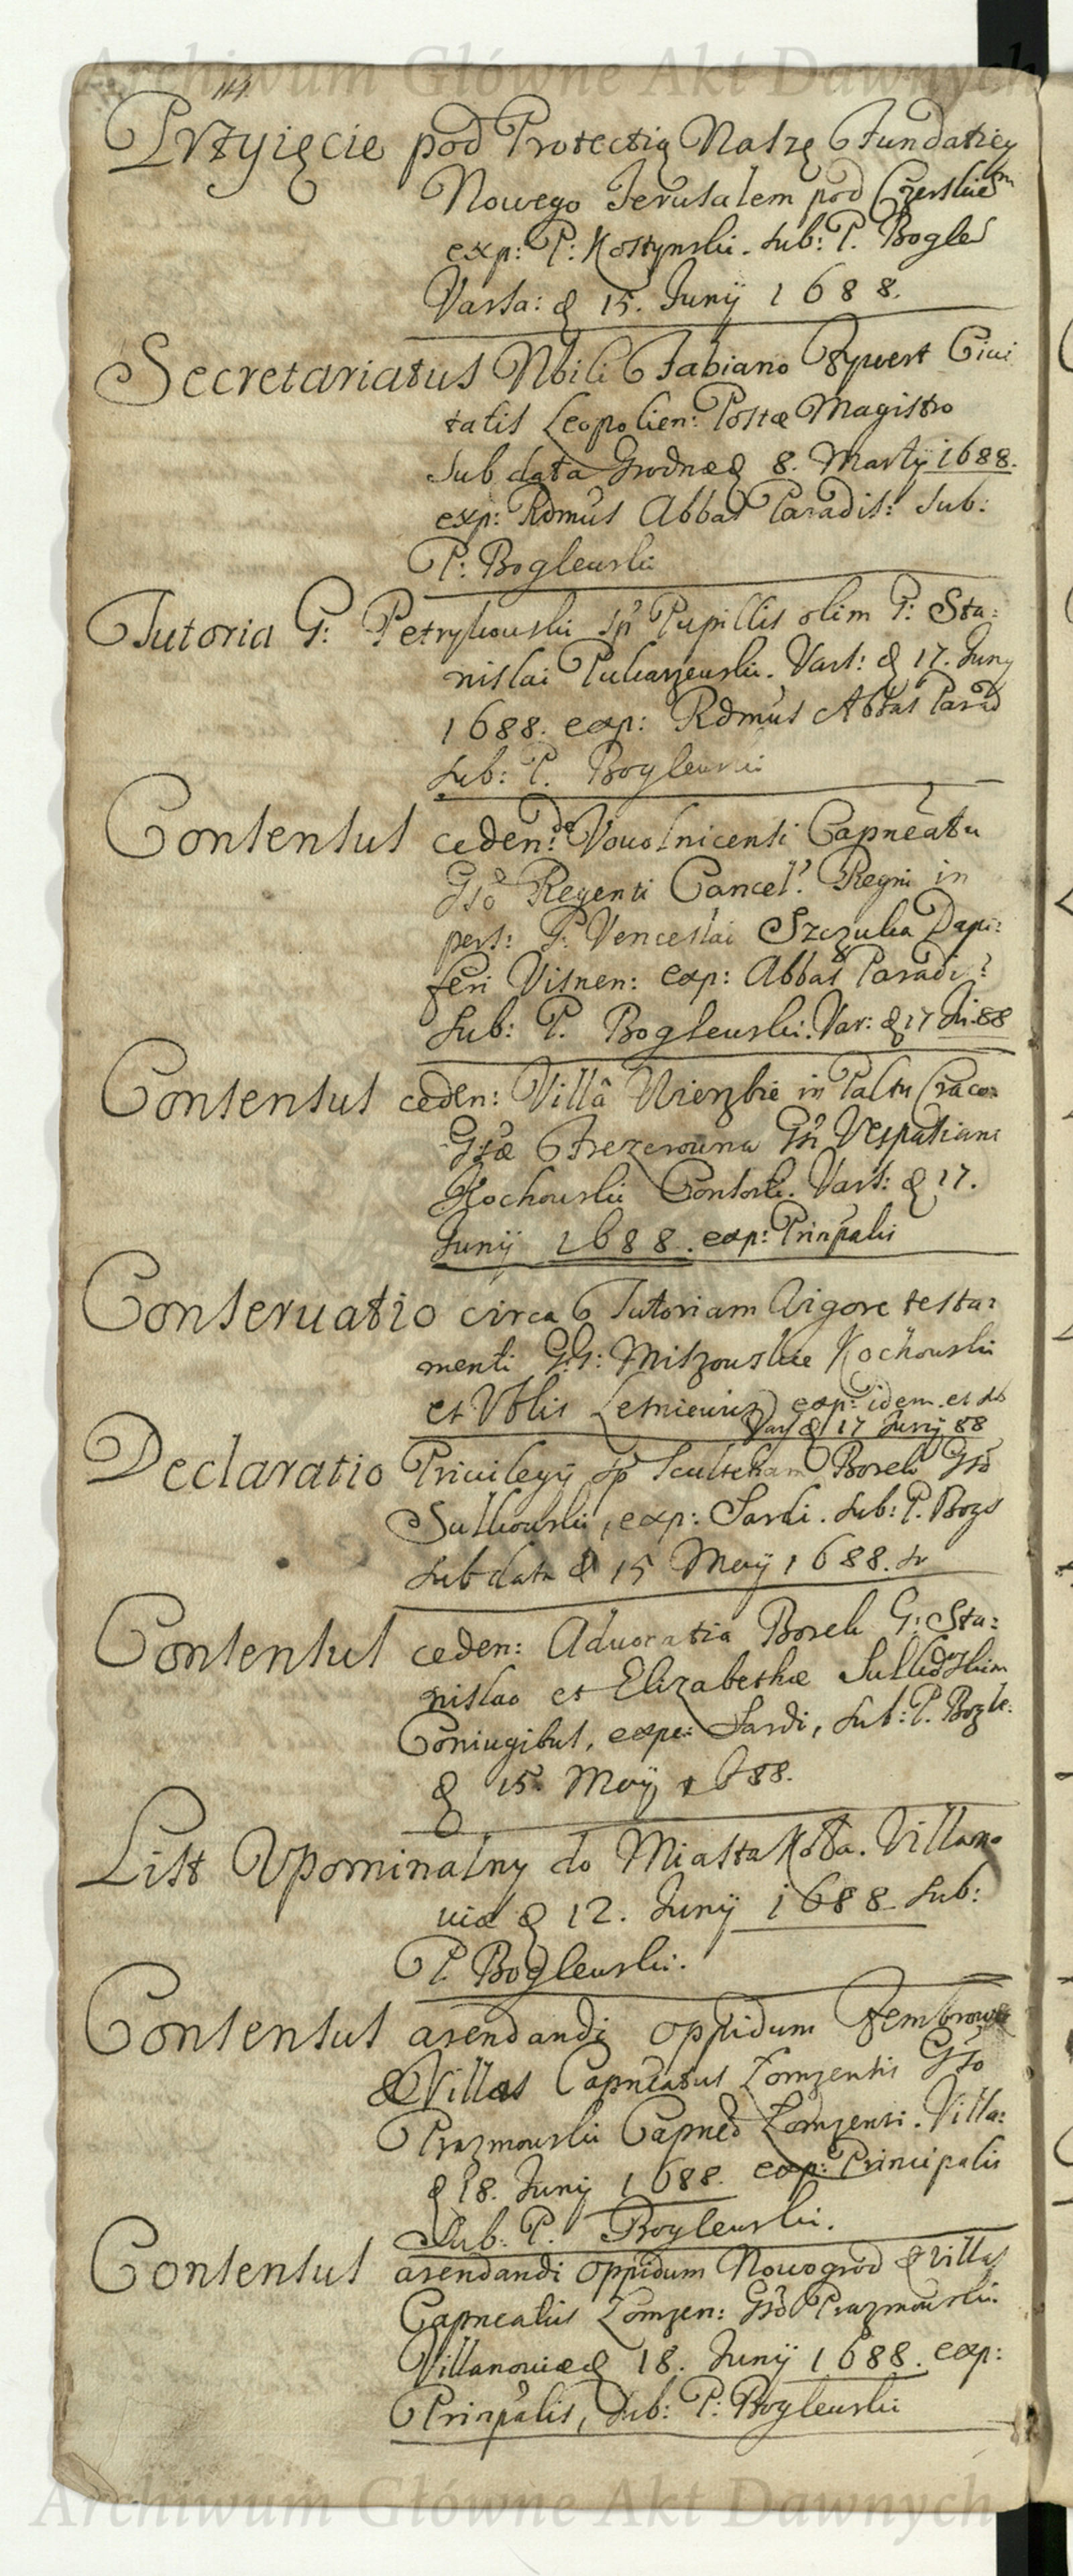 Archiwum Główne Akt Dawnych
114
Przyięcie pod Protectią Naszę Fundatiey
Nowego Jerusalem pod Czerskiem
exp: P: Kostynski. sub: P. Bogles
Varsa: d 15. Junÿ 1688.
Secretariatus Nbili Fabiano Civi
tatis Leopolien: Postæ Magistro
Sub data Grodnæ d 8. Martÿ 1688.
exp: Rdmus Abbas Paradis: sub:
P: Bogleuski
Tutoria G: Petrykouski sp Pupillis olim G: Sta:
nislai Pukarzeuski. Vars: d 17. Juny
1688. exp: Rdmus Abbas Parad
sub: P. Bogleuski
Consensus ceden:di Vouolnicensi Capneatu
Gso Regenti Cancel: Regni in
pers: G: Venceslai Szczuka Dapi:
feri Visnen: exp: Abbas Paradi:
sub: P. Bogleuski. Var: d 17 Ju: 88
Consensus ceden: Villâ Wierzbie in Paltu Craco:
Gsæ Frezerouna Gsi Vespatiani
Kochouski Consorti. Vars: d 17.
Junÿ 1688. exp: Prinpalis
Conseruatio circa Tutoriam Vigore testa:
menti G:G: Miszouskie Kochouski
et Nblis Letnieuicz exp: idem et sb
Vars d 17 Junÿ 88
Declaratio Priuilegÿ sp Scultetiam Borek Gso
Sulkouski, exp: Sardi. sub: P. Bogs
sub data d 15 Maÿ 1688. sr
Consensus ceden: Aduocatia Borek G: Sta:
nislao et Elizabethæ Sulkouskim
Coniugibus, expe: Sardi, sub: P. Bogle:
d 15. Maÿ 1688.
List Vpominalny do Miasta Koła. Villano
uiæ d 12. Junÿ 1688. sub:
P. Bogleuski.
Consensus arendandi oppidum Zembrow
& Villas Capneatus Lomzensis Gso
Prazmouski Capneo Lomzensi. Villa:
d 18. Junÿ 1688. exp: Principalis
Sub. P. Bogleuski.
Consensus arendandi oppidum Nowogrod & villas
Capneatus Lomzen: Gso Prazmouski
Villanouiæ d 18. Junÿ 1688. exp:
Prinpalis, sub: P: Bogleuski
Archiwum Główne Akt Dawnych